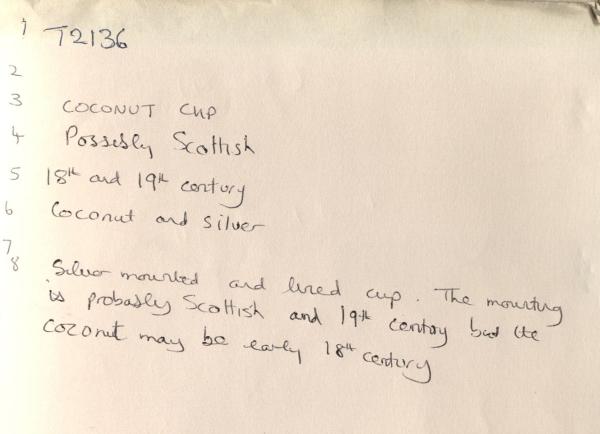 1 T2136
2
3 COCONUT CUP
4 Possibly Scottish
5 18th and 19th century
6 Coconut and silver
7
8 Silver mounted and lined cup. The mounting
is probably Scottish and 19th century but the
coconut may be early 18th century